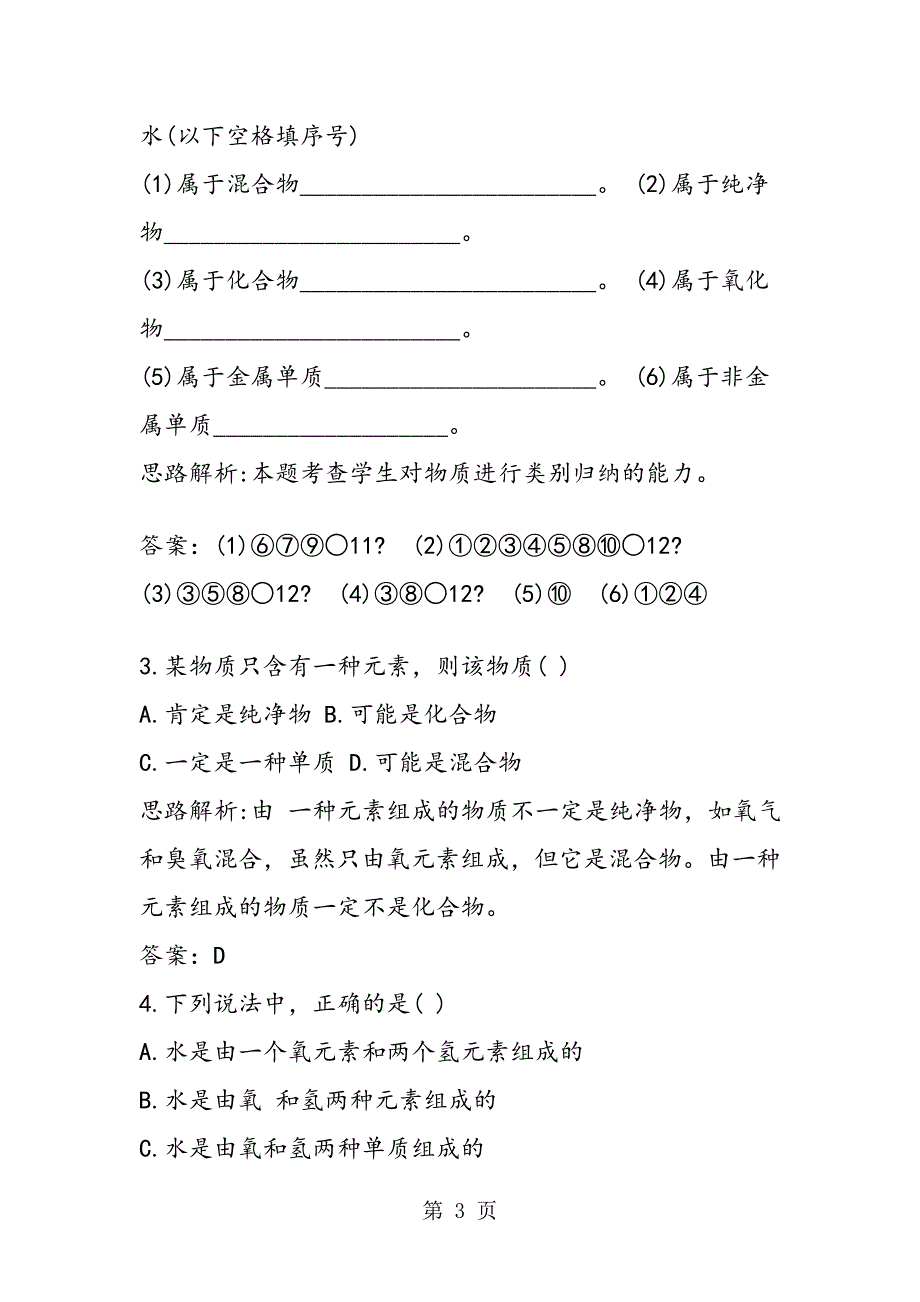 水(以下空格填序号)
(1)属于混合物________________________。 (2)属于纯净
物________________________。
(3)属于化合物________________________。 (4)属于氧化
物________________________。
(5)属于金属单质______________________。 (6)属于非金
属单质___________________。
思路解析:本题考查学生对物质进行类别归纳的能力。
答案：(1)⑥⑦⑨○11? (2)①②③④⑤⑧⑩○12?
(3)③⑤⑧○12? (4)③⑧○12? (5)⑩ (6)①②④
3.某物质只含有一种元素，则该物质( )
A.肯定是纯净物 B.可能是化合物
C.一定是一种单质 D.可能是混合物
思路解析:由 一种元素组成的物质不一定是纯净物，如氧气
和臭氧混合，虽然只由氧元素组成，但它是混合物。由一种
元素组成的物质一定不是化合物。
答案：D
4.下列说法中，正确的是( )
A.水是由一个氧元素和两个氢元素组成的
B.水是由氧 和氢两种元素组成的
C.水是由氧和氢两种单质组成的
第 3 页